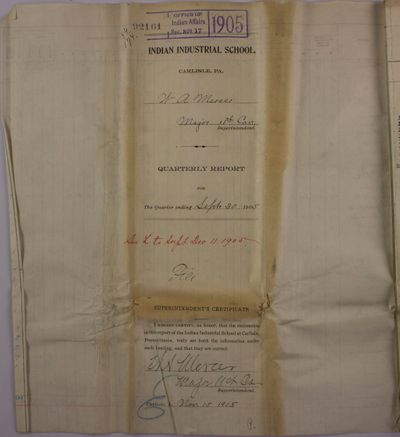 OFFICE OF
Indian Affairs
Rec. NOV 17
1905
92161
INDIAN INDUSTRIAL SCHOOL,
CARLISLE, PA.
W A Mercer
Major 11th Cav.
Superintendent.
QUARTERLY REPORT
FOR
The Quarter ending Sept 30 1905
See L to Supt Dec 11, 1905
File
SUPERINTENDENT'S CERTIFICATE
I HEREBY CERTIFY, on honor, that the statements
in this report of the Indian Industrial School at Carlisle,
Pennsylvania, truly set forth the information under
each heading, and that they are correct.
W A Mercer
Major 11th Cav
Superintendent.
Carlisle, Nov. 15 1905